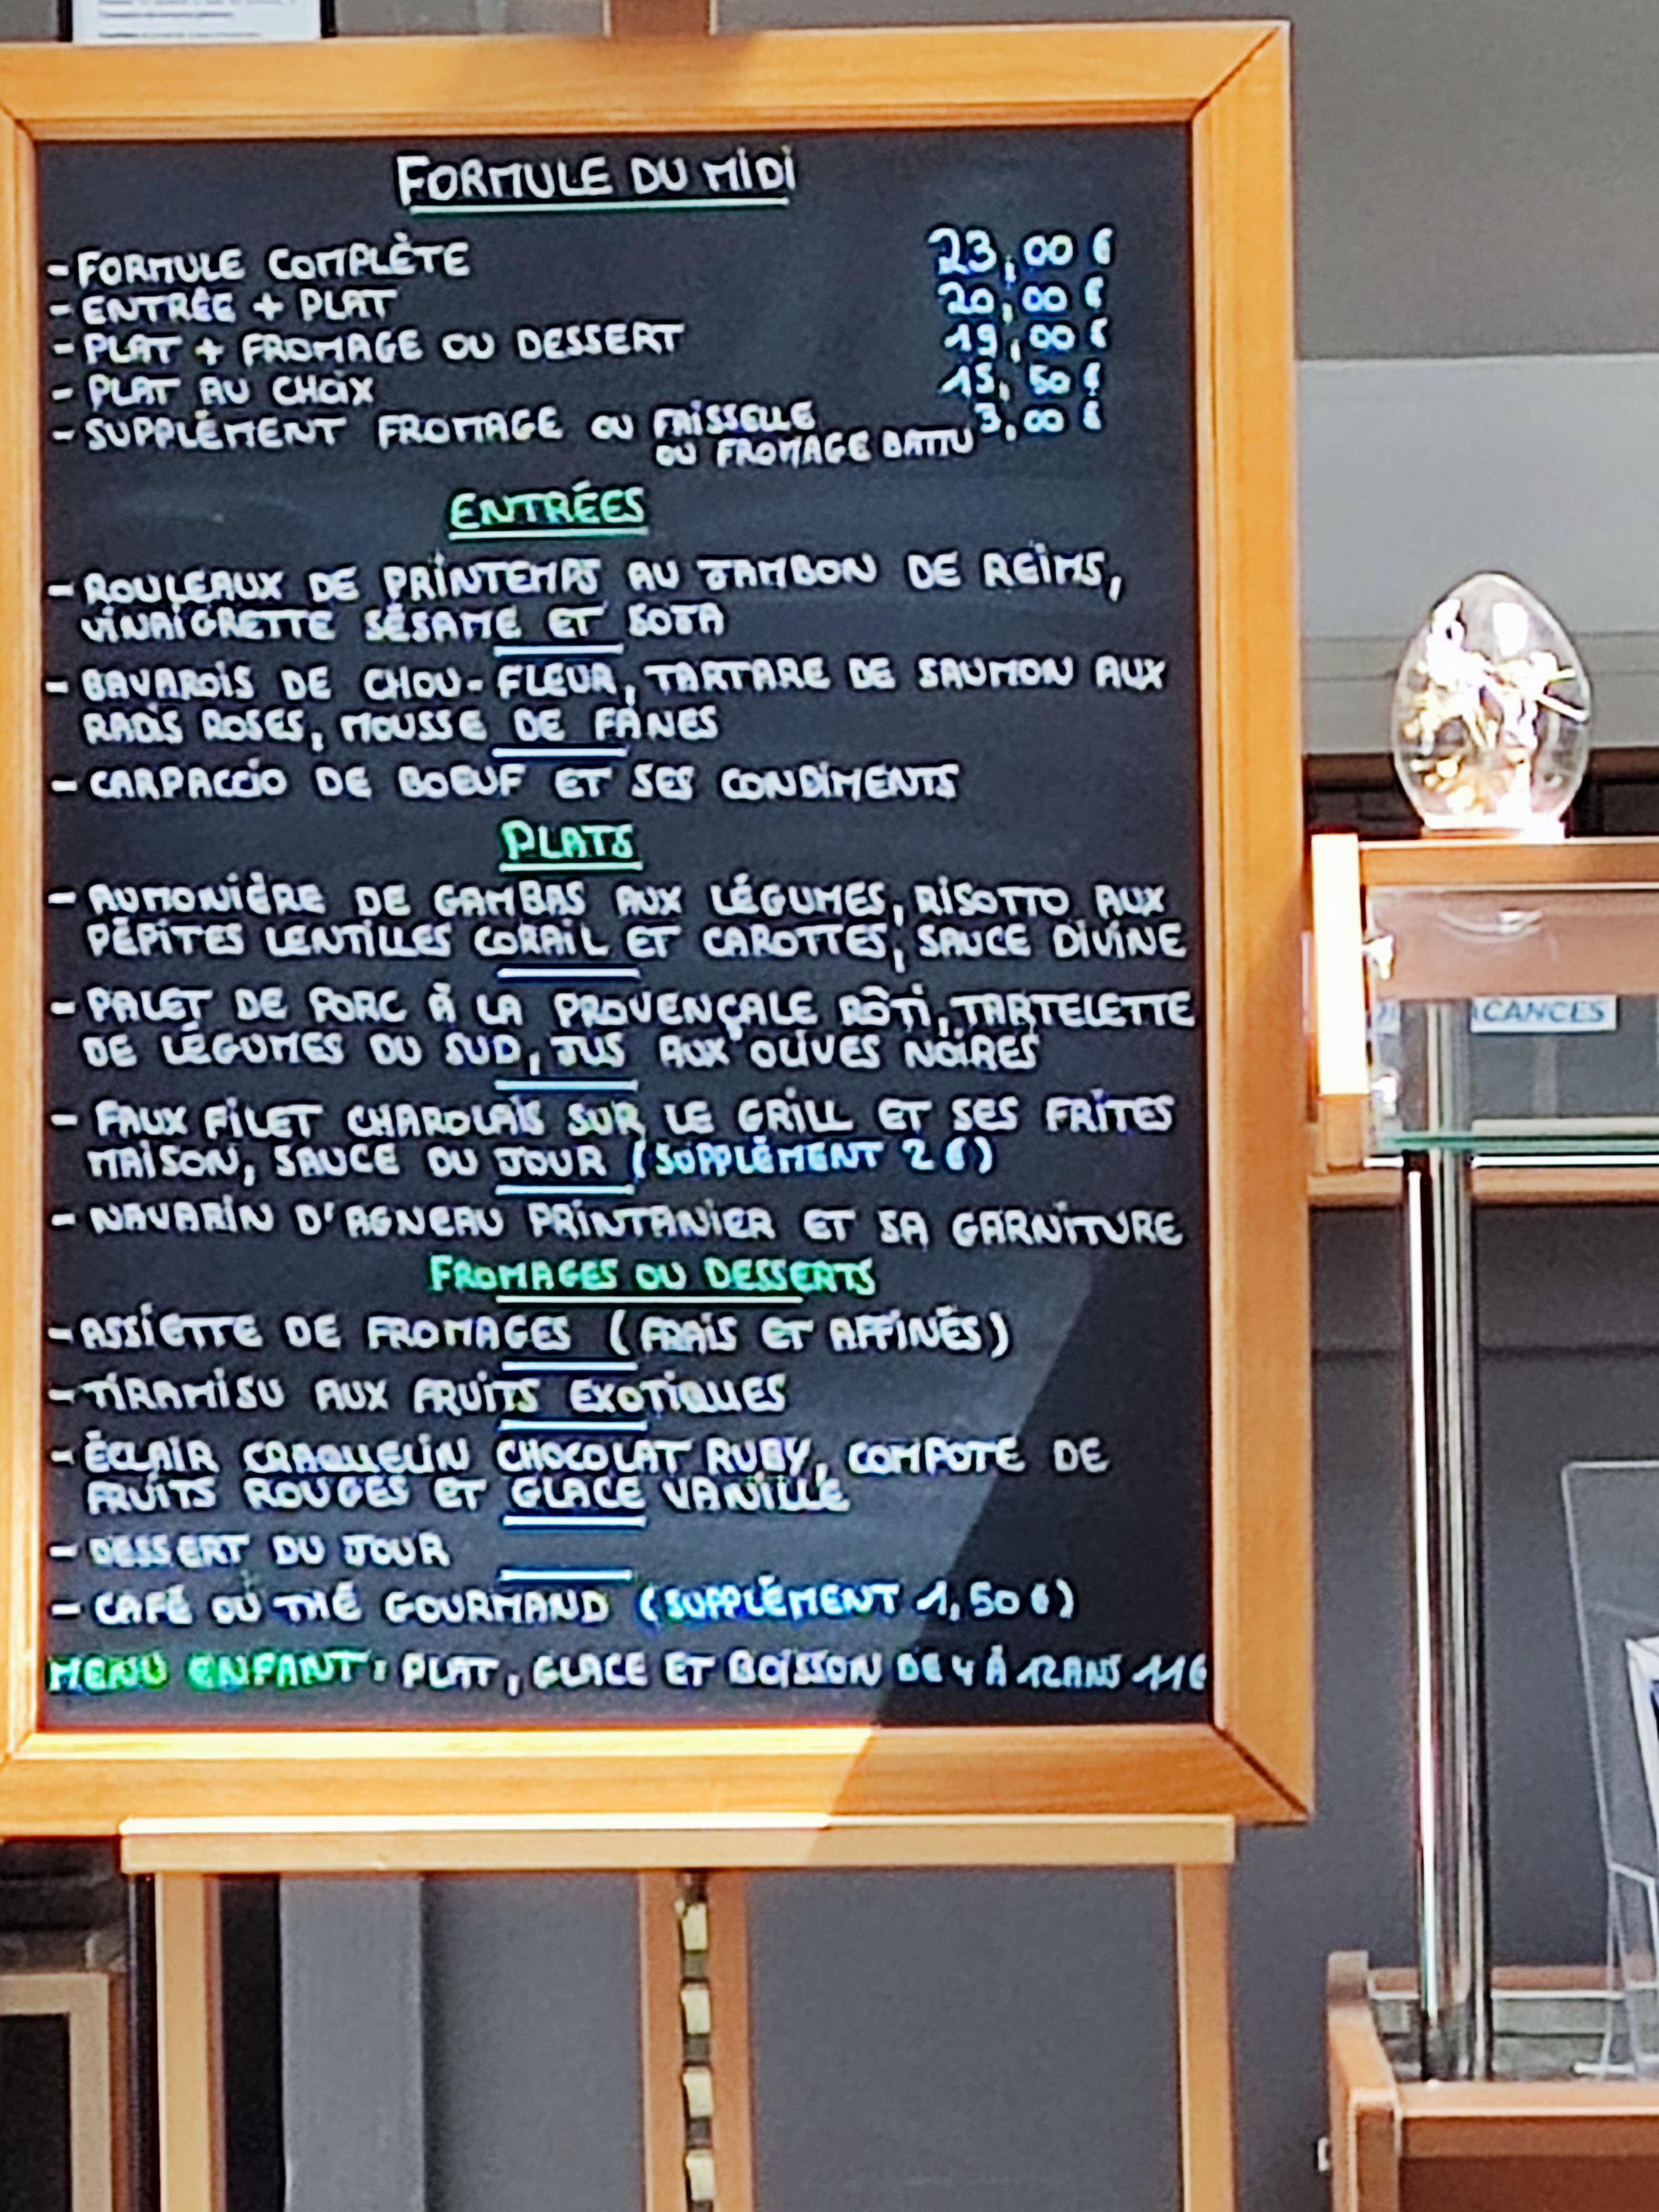 FORMULE DU MIDI
- FORMULE COMPLÈTE 23,00 €
- ENTRÉE + PLAT 20,00 €
- PLAT + FROMAGE OU DESSERT 19,00 €
- PLAT AU CHOIX 15,50 €
- SUPPLÉMENT FROMAGE OU FAISSELLE 3,00 €
OU FROMAGE BATTU
ENTRÉES
- ROULEAUX DE PRINTEMPS AU JAMBON DE REIMS,
VINAIGRETTE SÉSAME ET SOJA
- BAVAROIS DE CHOU-FLEUR, TARTARE DE SAUMON AUX
RADIS ROSES, MOUSSE DE FANES
- CARPACCIO DE BOEUF ET SES CONDIMENTS
PLATS
- AUMONIÈRE DE GAMBAS AUX LÉGUMES, RISOTTO AUX
PÉPITES LENTILLES CORAIL ET CAROTTES, SAUCE DIVINE
- PALET DE PORC À LA PROVENÇALE RÔTI, TARTELETTE
DE LÉGUMES DU SUD, JUS AUX OLIVES NOIRES
- FAUX FILET CHAROLAIS SUR LE GRILL ET SES FRITES
MAISON, SAUCE DU JOUR (SUPPLÉMENT 2 €)
- NAVARIN D'AGNEAU PRINTANIER ET SA GARNITURE
FROMAGES OU DESSERTS
- ASSIETTE DE FROMAGES (FRAIS ET AFFINÉS)
- TIRAMISU AUX FRUITS EXOTIQUES
- ÉCLAIR CRAQUELIN CHOCOLAT RUBY, COMPOTE DE
FRUITS ROUGES ET GLACE VANILLE
- DESSERT DU JOUR
- CAFÉ OU THÉ GOURMAND (SUPPLÉMENT 1,50 €)
MENU ENFANT : PLAT, GLACE ET BOISSON DE 4 À 12 ANS 11€
ACANCES